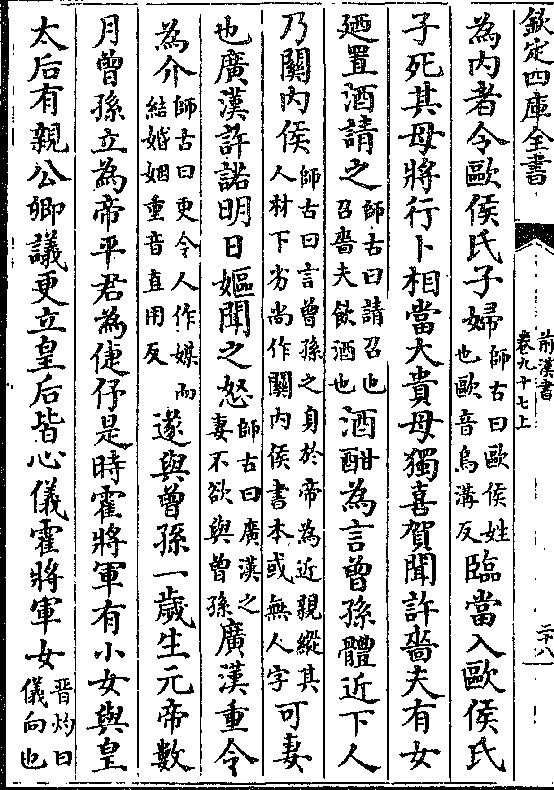 欽定四庫全書
前漢書
卷九十七上
二十八
為內者令歐侯氏子婦師古曰歐侯姓也歐音烏溝反臨當入歐侯氏
子死其母將行卜相當大貴母獨喜賀聞許嗇夫有女
廼置酒請之師古曰請召也召嗇夫飲酒也酒酣為言曾孫體近下人
乃關內侯師古曰言曾孫之身於帝為近親縱其人材下劣尚作關內侯書本或無人字可妻
也廣漢許諾明日嫗聞之怒師古曰廣漢之妻不欲與曾孫廣漢重令
為介師古曰更令人作媒而結婚姻重音直用反遂與曾孫一歲生元帝數
月曾孫立為帝平君為倢伃是時霍將軍有小女與皇
太后有親公卿議更立皇后皆心儀霍將軍女晉灼曰儀向也